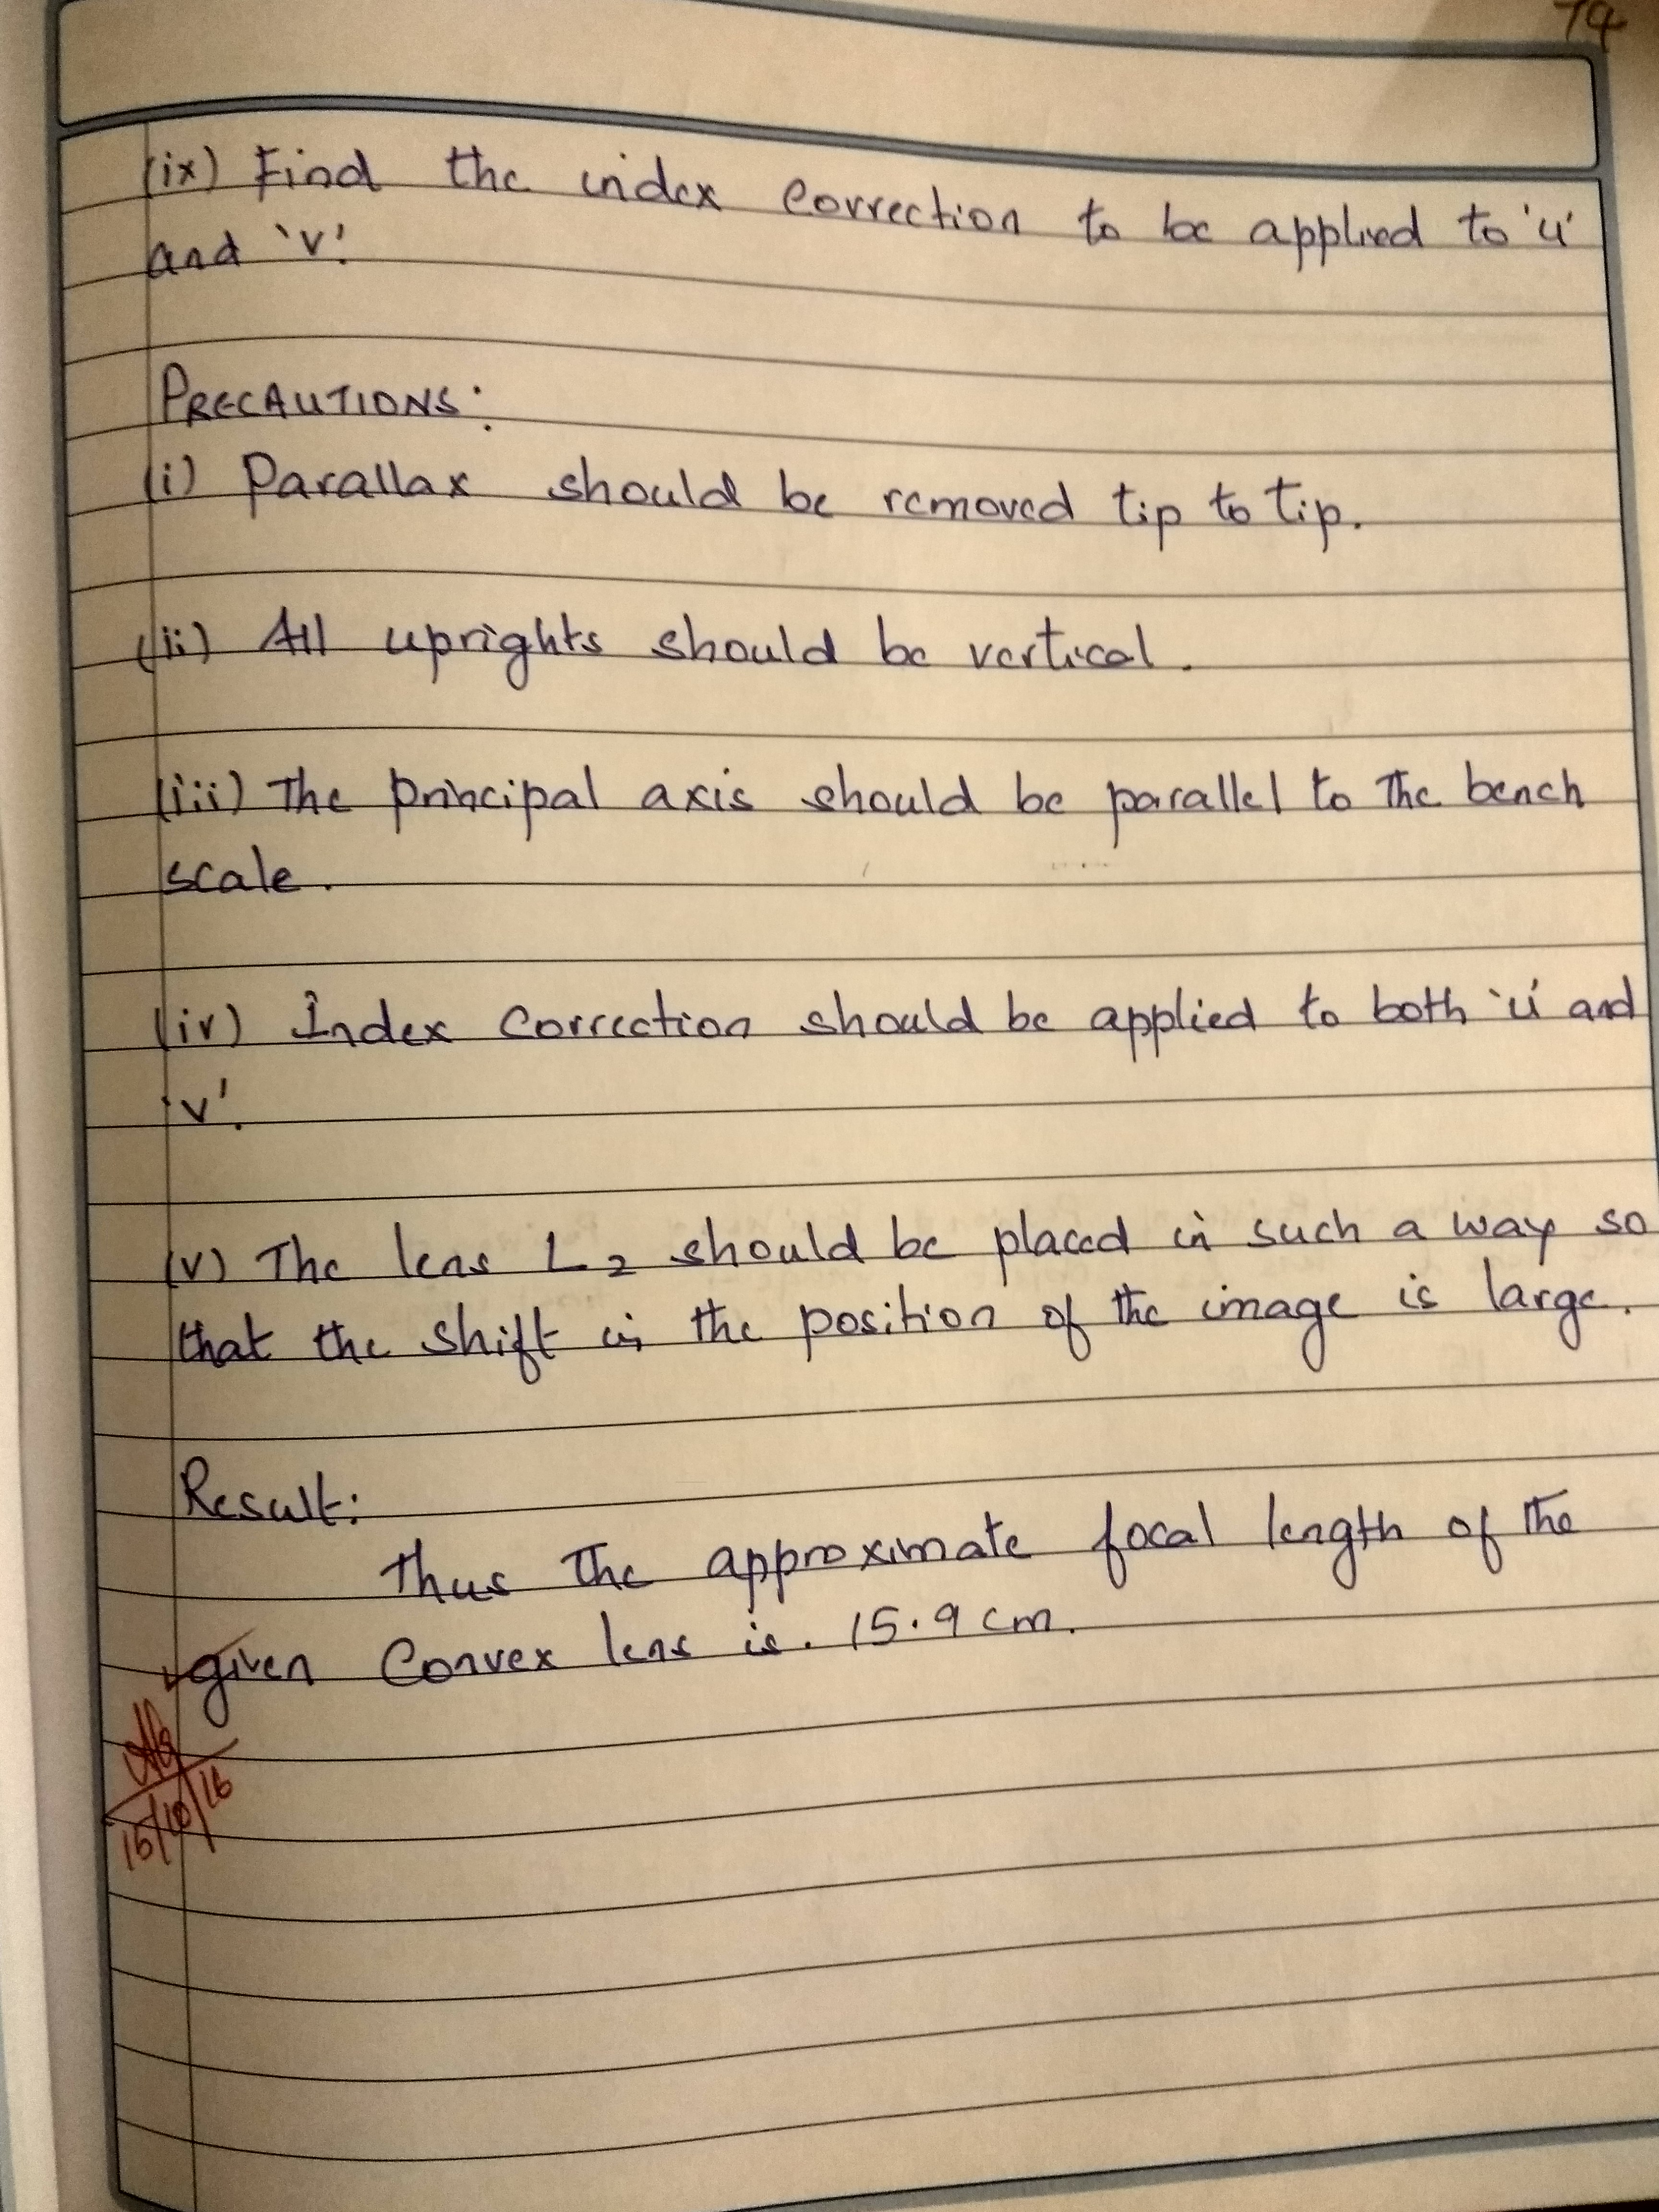 74
(ix) Find the index correction to be applied to 'u'
and 'v'.
PRECAUTIONS:
(i) Parallax should be removed tip to tip.
(ii) All uprights should be vertical.
(iii) The principal axis should be parallel to the bench
scale.
(iv) Index correction should be applied to both 'u' and
'v'.
(v) The lens L2 should be placed in such a way so
that the shift in the position of the image is large.
Result:
Thus the approximate focal length of the
given convex lens is. 15.9 cm.
15/10/16